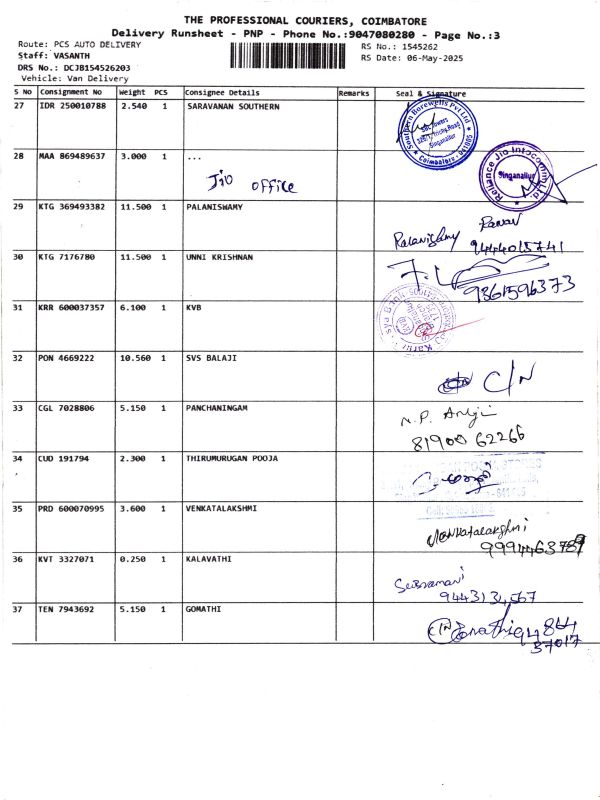 THE PROFESSIONAL COURIERS, COIMBATORE
Delivery Runsheet - PNP - Phone No.:9047080280 - Page No.:3
Route: PCS AUTO DELIVERY
RS No.: 1545262
Staff: VASANTH
RS Date: 06-May-2025
DRS No.: DCJB154526203
Vehicle: Van Delivery
S No Consignment No Weight PCS Consignee Details Remarks Seal & Signature
27 IDR 250010788 2.540 1 SARAVANAN SOUTHERN
Southern Borewells Pvt Ltd
Singanallur
Coimbatore - 641005
28 MAA 869489637 3.000 1 ...
Jio office
Reliance Jio Infocomm Ltd
Singanallur
29 KTG 369493382 11.500 1 PALANISWAMY
Palanishmy
9444015741
30 KTG 7176780 11.500 1 UNNI KRISHNAN
9361596373
31 KRR 600037357 6.100 1 KVB
32 PON 4669222 10.560 1 SVS BALAJI
C/N
33 CGL 7028806 5.150 1 PANCHANINGAM
N.P.
81900 62266
34 CUD 191794 2.300 1 THIRUMURUGAN POOJA
35 PRD 600070995 3.600 1 VENKATALAKSHMI
Venkatalakshmi
36 KVT 3327071 0.250 1 KALAVATHI
37 TEN 7943692 5.150 1 GOMATHI
37017